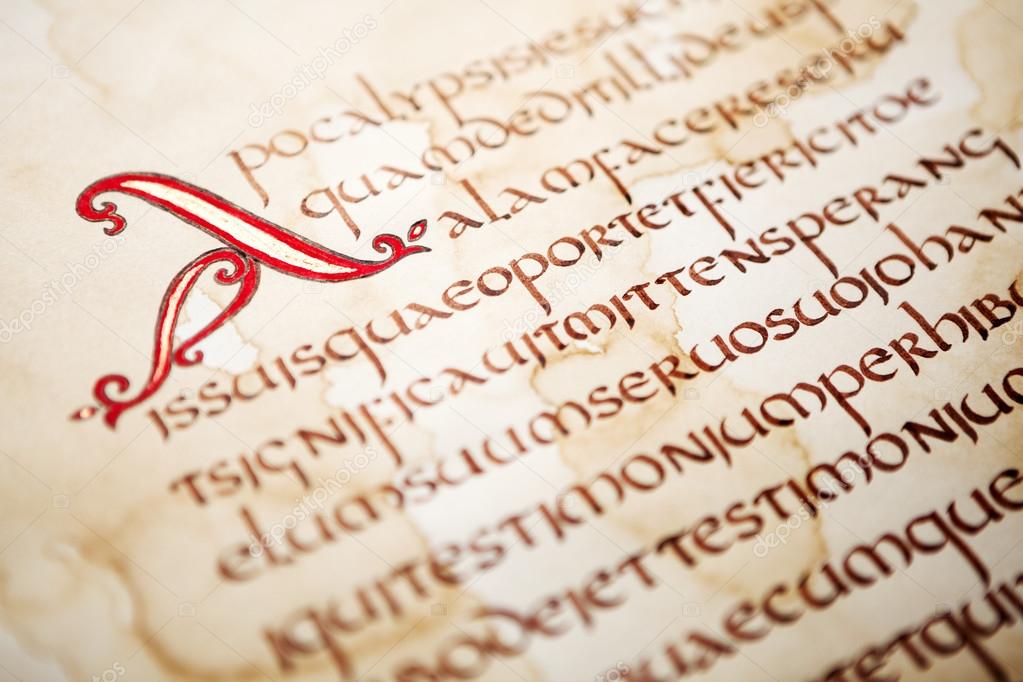 Apocalypsisiesu
quamdeditillideusp
alamfacereseru
issuisquaeoportetfiericitoe
tsignificauitmittensperang
elumsuumseruosuoiohan
iquitestimoniumperhib
bodeiettestimoniu
uaecumque
etqui
depositphotos